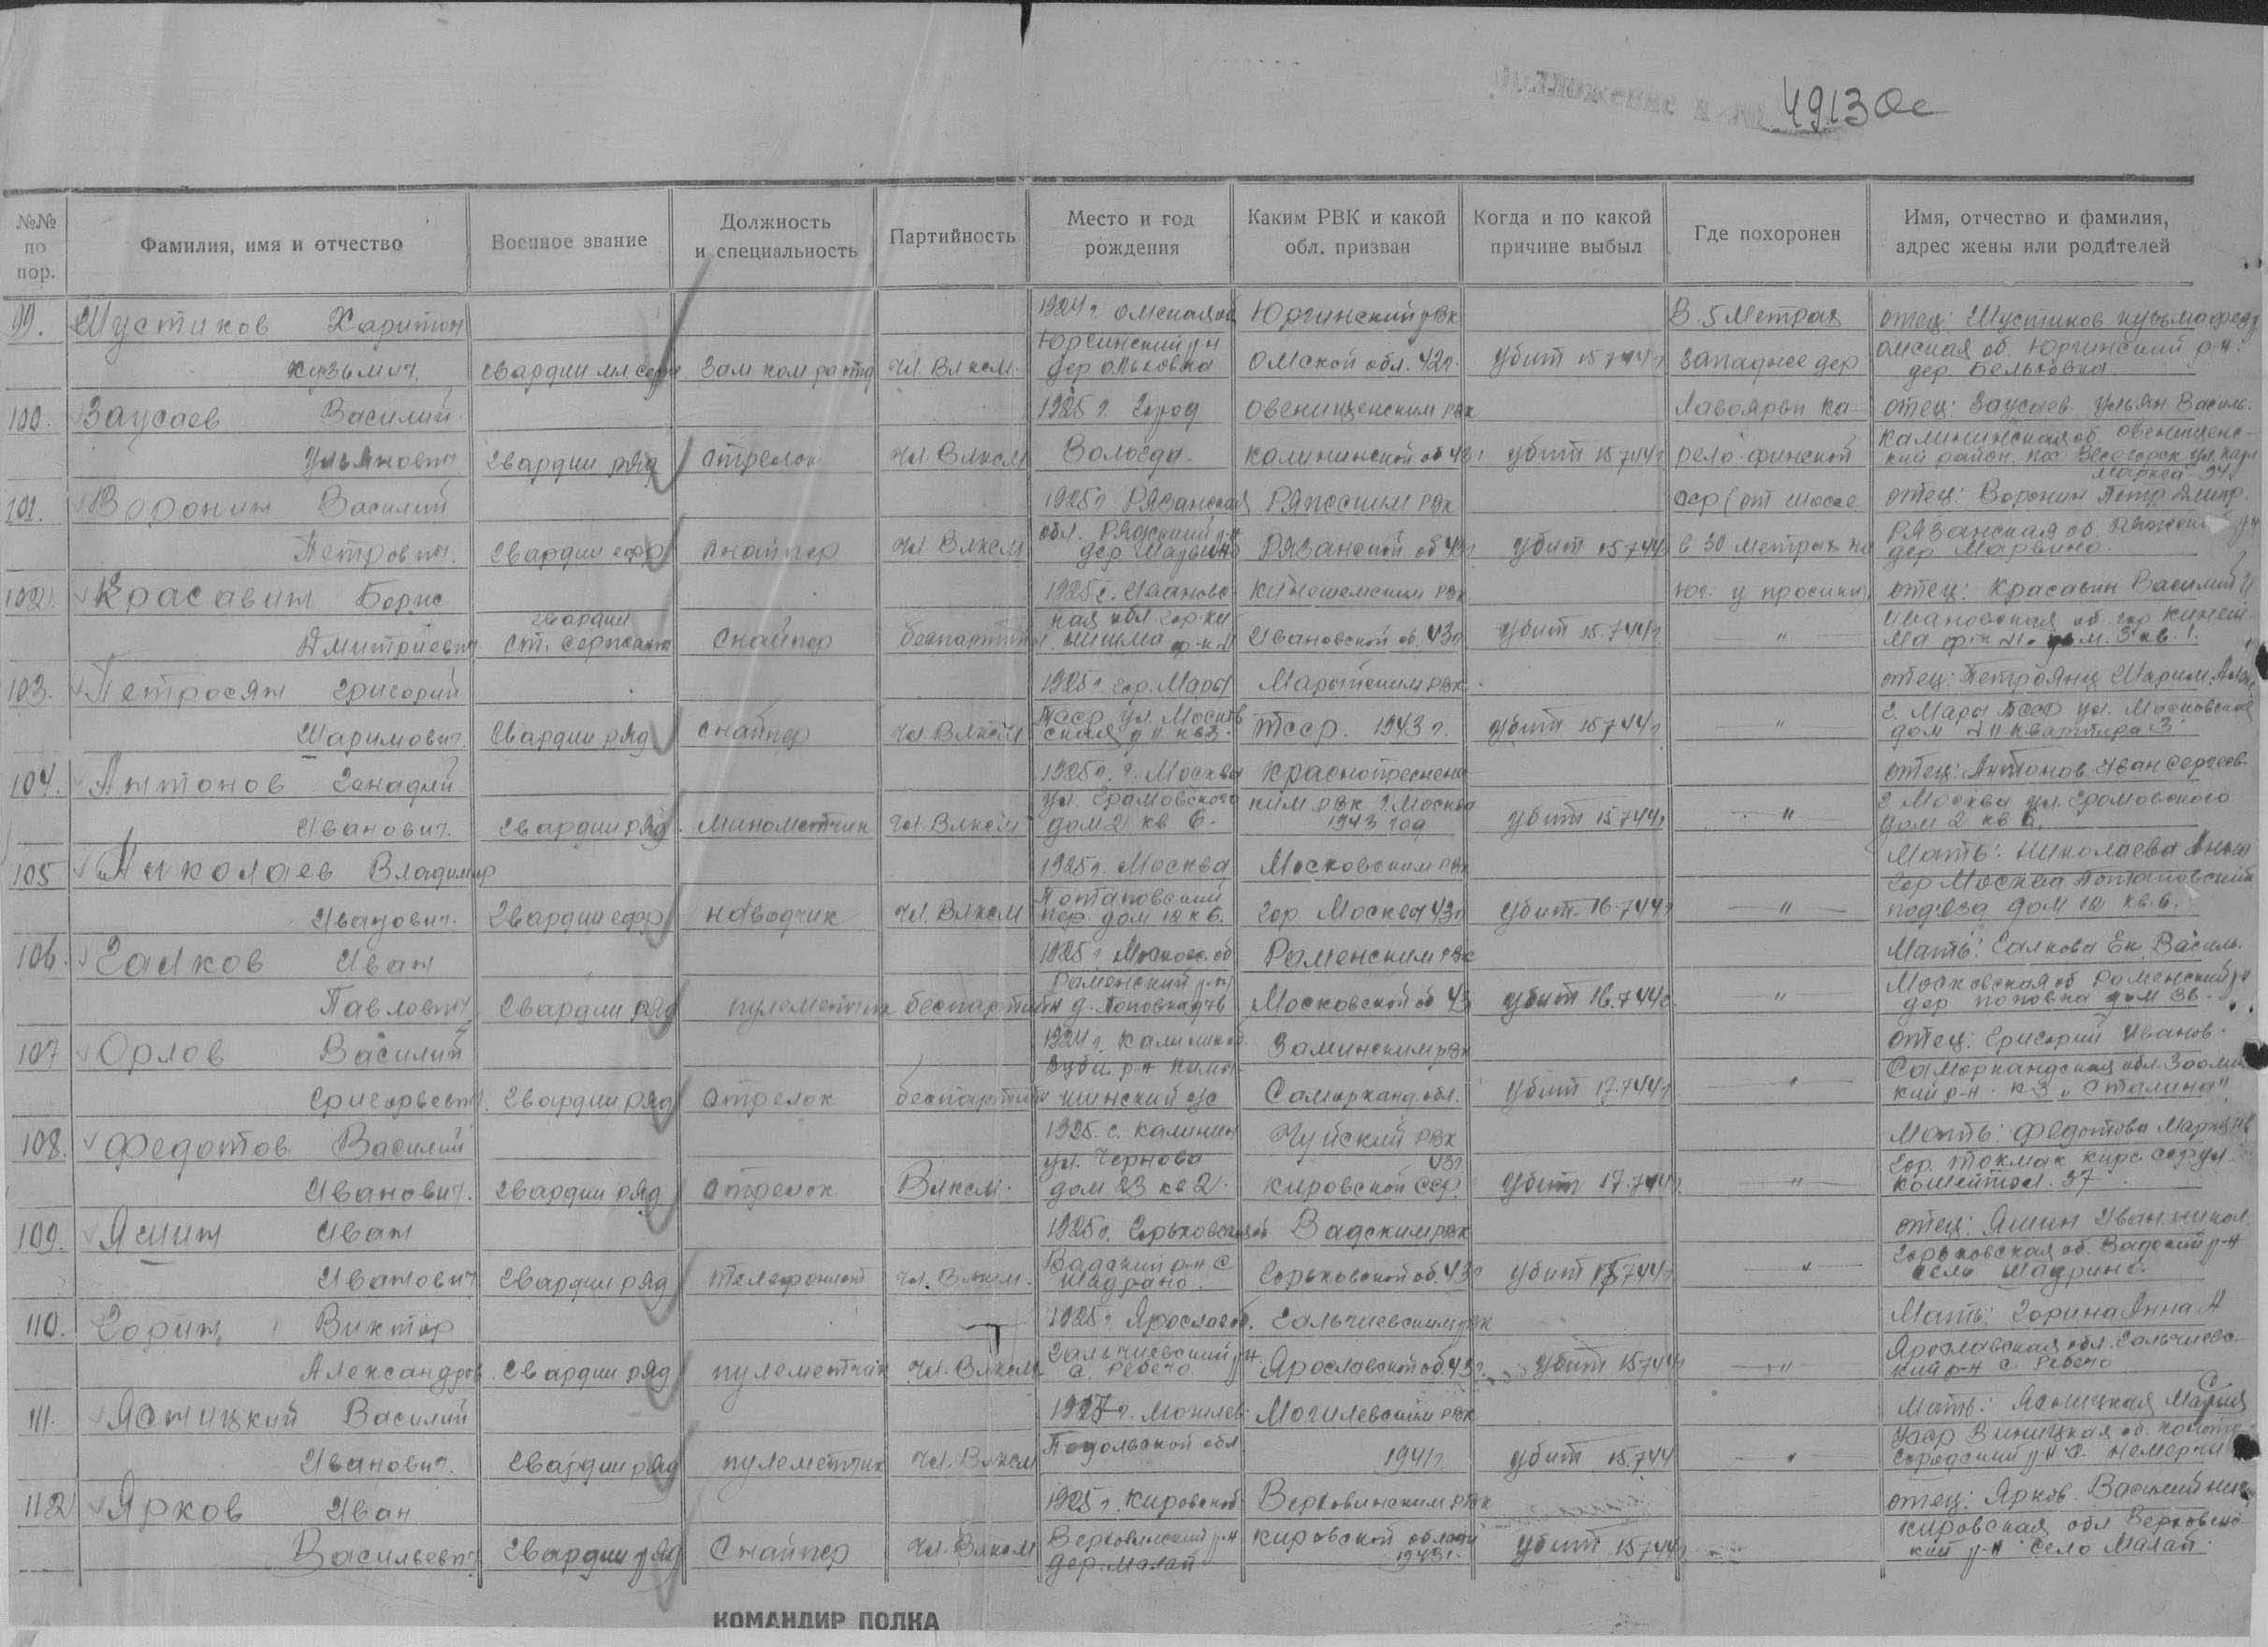 49130с
№№ по пор. | Фамилия, имя и отчество | Военное звание | Должность и специальность | Партийность | Место и год рождения | Каким РВК и какой обл. призван | Когда и по какой причине выбыл | Где похоронен | Имя, отчество и фамилия, адрес жены или родителей
99. Шустиков Харитон | 1924 г. Омская об | Юргинский рвк | В 5 метрах | отец: Шустиков Кузьма
Кузьмич. | Гвардии мл серж | Зам ком | Чл. Влксм. | Юргинский р-н дер | Омской обл. 42г. | Убит 15 7 44г | западнее дер | Омская об. Юргинский р-н. дер Бельковка
100. Заусаев Василий | 1925 г. Город | Овенищенским рвк | Лавоярви Ка- | отец: Заусаев Ульян Василь.
Ульянович | Гвардии ряд | Стрелок | Чл. Влксм | Вологда | Калининской об 43г | Убит 15 7 44г. | рело-финской | Калининская об Овенищенс- кий район. пос Весегорск ул. Карл Маркса
101. Воронин Василий | 1925 г. Рязанская | РВК | сср (от шоссе | отец: Воронин Петр Дмитр.
Петрович. | Гвардии ефр | Снайпер | Чл. Влксм | обл. Ряжский р-н дер. Марвино | Рязанской об 43г | Убит 15 7 44 | в 30 метрах на | Рязанская об. дер Марвино.
102. Красавин Борис | 1925 г. Ивановс- | Кинешемским рвк | юг. у просики) | отец: Красавин Василий
Дмитриевич | гвардии ст. сержант | Снайпер | беспартийн | кая обл. гор. Ки нешма ф-ка | Ивановской об. 43г. | Убит 15.7.44г. | " | Ивановская об. гор Кинеш- ма ф-ка дом. 3 кв. 1.
103. Петросян Григорий | 1925 г. гор. Мары | Марыйским рвк | отец: Шарим
Шаримович. | Гвардии ряд | Снайпер | Чл. Влксм | Тсср ул. Московс ская д 11 кв 3. | Тсср. 1943 г. | Убит 15 7 44г | " | г. Мары Тсср ул. Московская дом 11 квартира 3
104. Антонов Генадий | 1925 г. г. Москва | Краснопреснен- | отец: Антонов Иван Сергеев
Иванович. | Гвардии ряд. | Минометчик | Чл. Влксм | ул. Грамовского дом 2 кв 6. | ким рвк г. Москва 1943 год | Убит 15 7 44г | " | г. Москва ул. Громовского дом 2 кв 6.
105 Николаев Владимир | 1925 г. Москва | Московским рвк | Мать: Николаева Анна
Иванович. | Гвардии ефр | наводчик | Чл. Влксм | Потаповский пер. дом 12 к 6. | гор Москва 43г | Убит. 16.7 44г | " | гор Москва Потаповский подъезд дом 12 кв. 6.
106. Галков Иван | 1925 г Москов. об | Раменским рвк | Мать: Галкова Ек. Василь.
Павлович | Гвардии ряд | пулеметчик | беспартийн | Раменский р-н д. Поповка | Московской об 43 | Убит 16.7 44г. | " | Московская об Раменский р-н дер поповка дом 36.
107 Орлов Василий | 1924 г. Калинин об | Заминским рвк | отец: Григорий Иванов.
Григорьевич | Гвардии ряд | Стрелок | беспартийн | Самарканд. обл. | Убит 17.7 44г | " | Самаркандская обл. кий р-н. кз "Сталина"
108. Федотов Василий | 1925. г. Калинин | Чуйский рвк | Мать: Федотова Мария
Иванович. | Гвардии ряд | Стрелок | Влксм. | ул. Чернова дом 23 кв 2. | 43г. Кировской сср. | Убит 17.7 44г. | " | гор. Токмак Кирг сср ул. 37
109. Яшин Иван | 1925 г. Горьковская об | Вадским рвк | отец: Яшин Иван Никол.
Иванович | Гвардии ряд | телефонист | Чл. Влксм. | Вадский р-н с Шадрино. | Горьковской об. 43г | Убит 15 7 44г | " | Горьковская об. Вадский р-н село Шадрино.
110. Горин Виктор | 1925 г. Ярослав об. | рвк | Мать: Горина Анна А
Александров. | Гвардии ряд | пулеметчик | Чл. Влксм | с. Ребечо | Ярославской об 43г. | Убит 15 7 44г | " | Ярославская обл. кий р-н с. Ребечо
111. Ясницкий Василий | 1917 г. Могилев- | Могилевским рвк | Мать: Ясницкая Мария
Иванович. | Гвардии ряд | пулеметчик | Чл. Влксм | Подольской обл | 1941г. | Убит 15.7 44 | " | Усср Виницкая об. с. Немерчи
112 Ярков Иван | 1925 г. Кировской | Верховинским рвк | отец: Ярков Василий
Васильевич | Гвардии ряд | Снайпер | Чл. Влксм | Верховинский р-н дер. Малай | Кировской области 1943г. | Убит 15 7 44г | Кировская обл Верховинс- кий р-н село Малай.
КОМАНДИР ПОЛКА